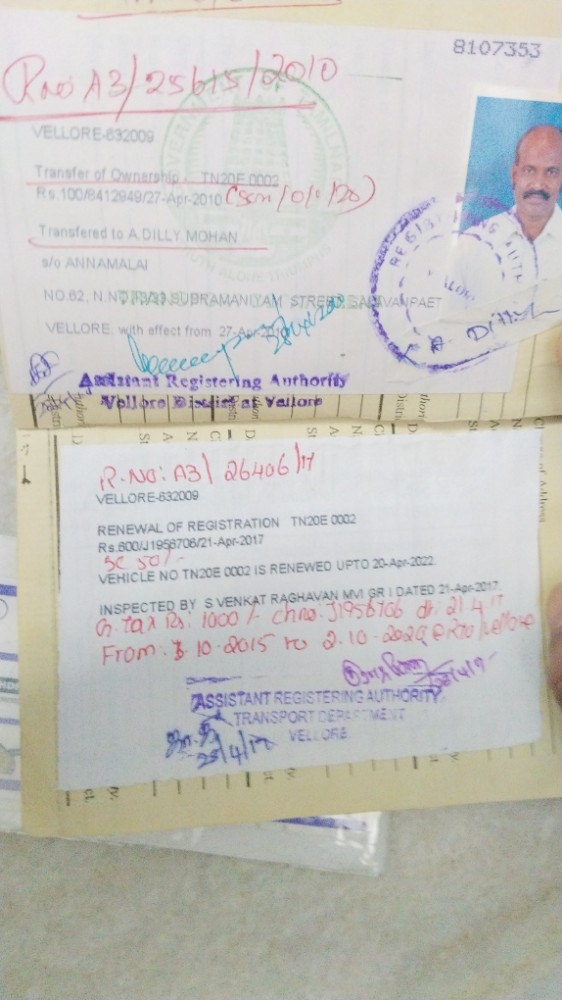 8107353
R.no A3/25615/2010
VELLORE-632009
Transfer of Ownership - TN20E 0002
Rs.100/6412949/27-Apr-2010
Transfered to A.DILLY MOHAN
s/o ANNAMALAI
NO.62, SUBRAMANIYAM STREET
VELLORE, with effect from 27-Apr-2010
A. Dilly
Assistant Registering Authority
Vellore District at Vellore
R.NO: A3/26406/17
VELLORE-632009
RENEWAL OF REGISTRATION TN20E 0002
Rs.600/J1956706/21-Apr-2017
SC 50/-
VEHICLE NO TN20E 0002 IS RENEWED UPTO 20-Apr-2022
INSPECTED BY S VENKAT RAGHAVAN MVI GR I DATED 21-Apr-2017
G. Tax Rs: 1000/- ch no: J1956706 dt: 21.4.17
From: 3.10.2015 to 2.10.2020 @ RTO/Vellore
ASSISTANT REGISTERING AUTHORITY
TRANSPORT DEPARTMENT
VELLORE